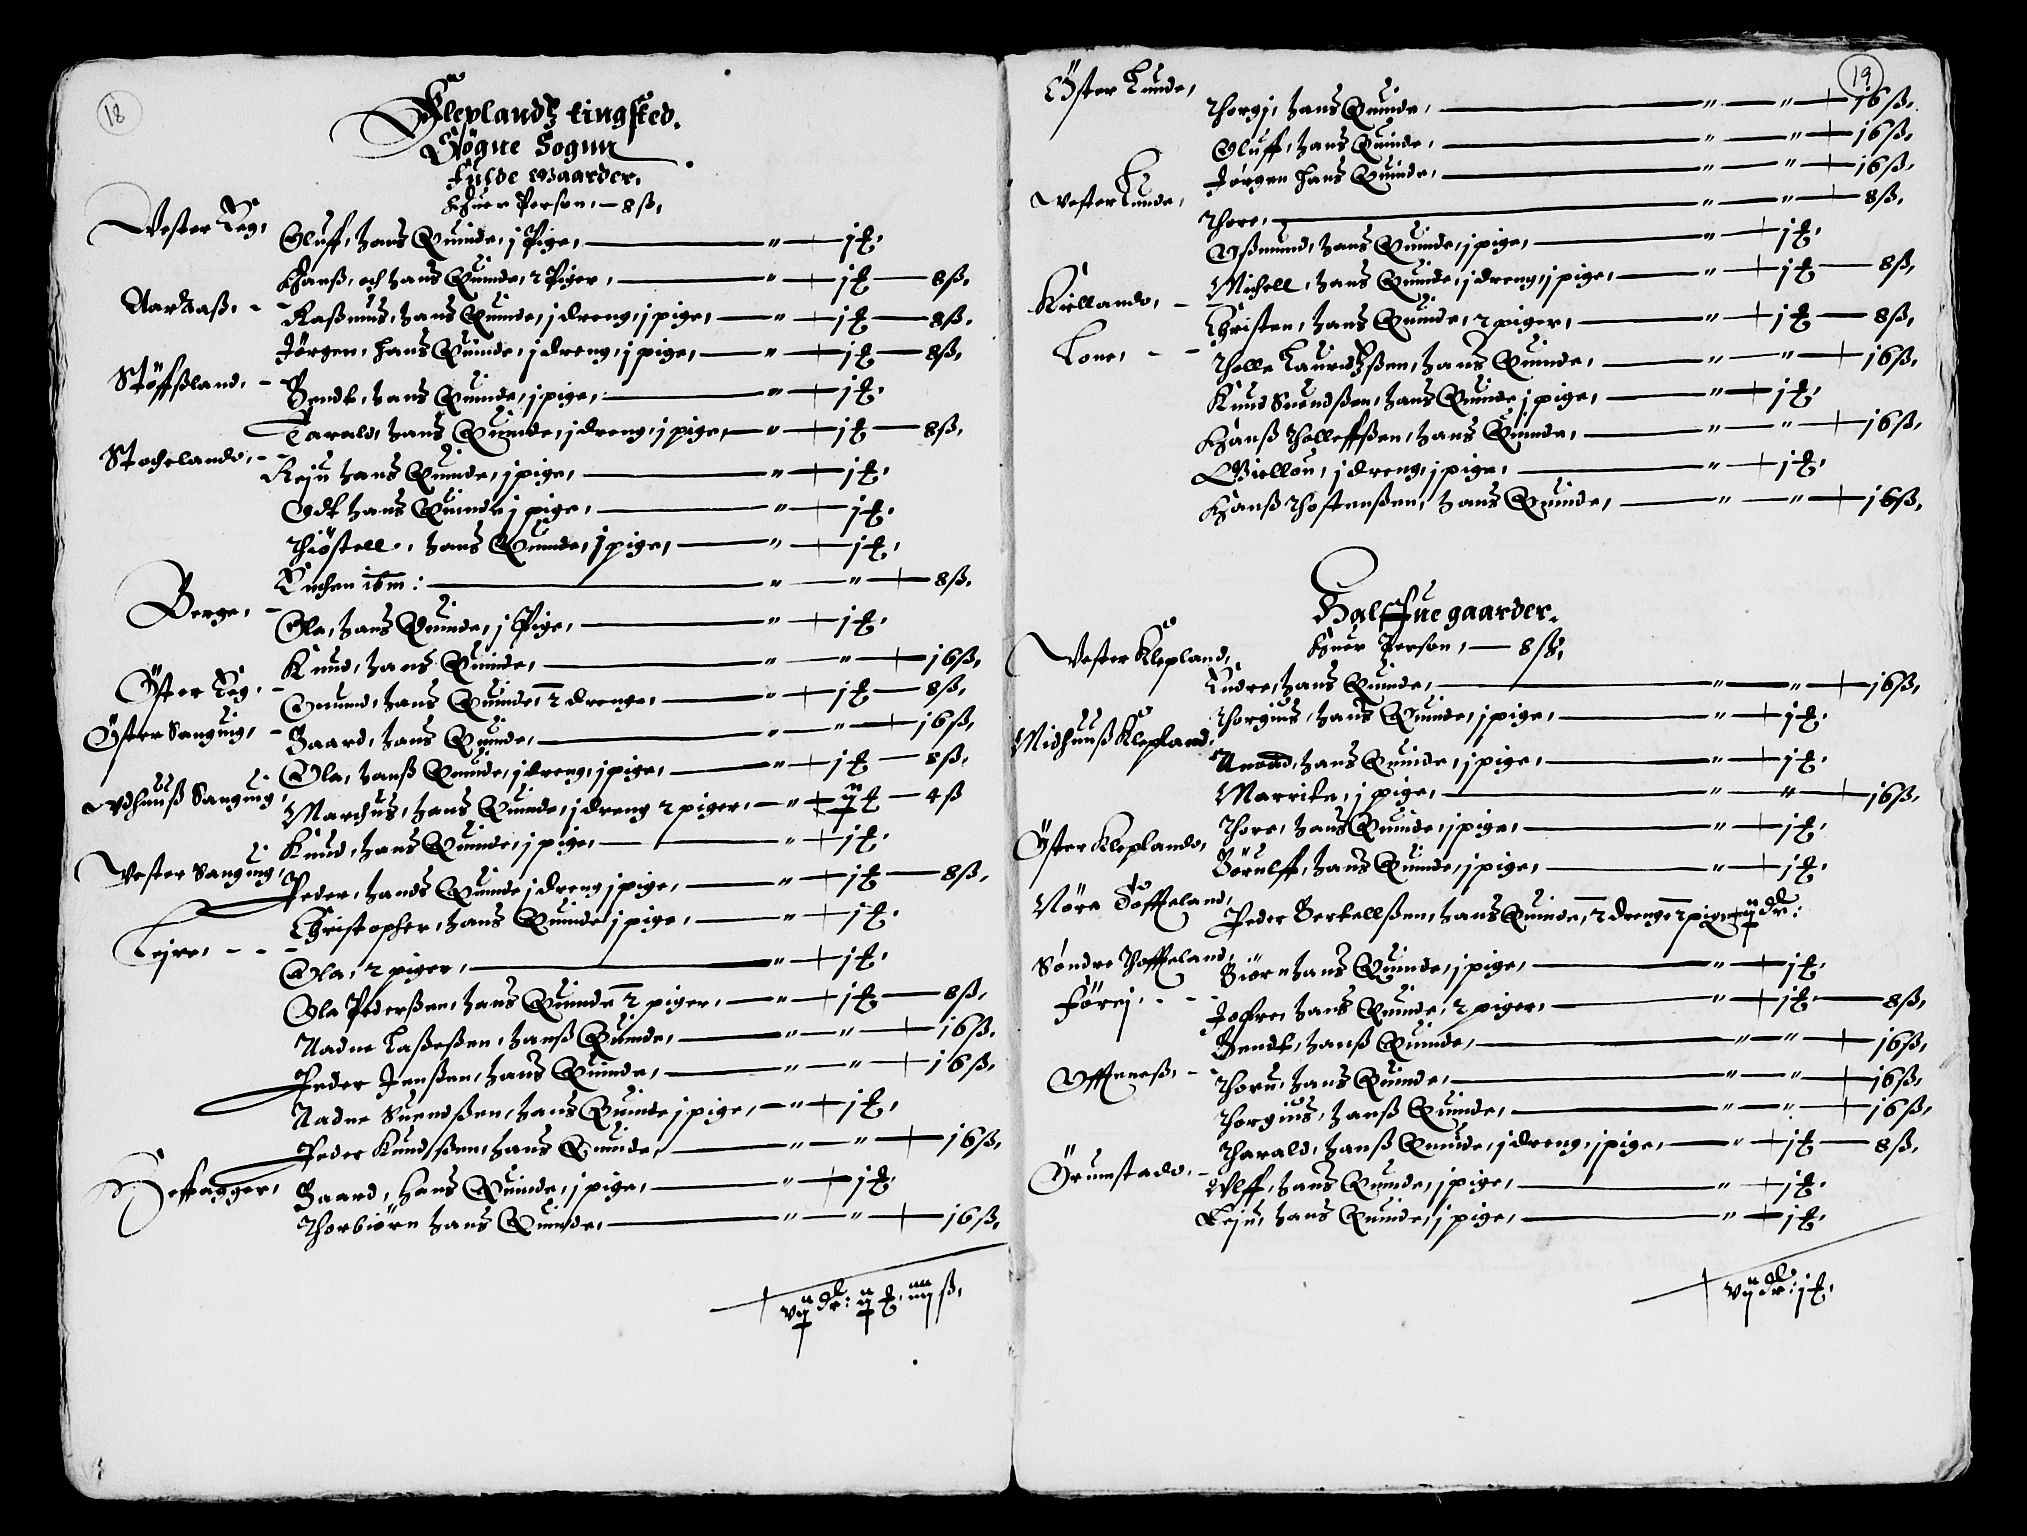 18
Kleplandtz tingsted.
Søgne Sognn
Fulde Gaarder.
Huer Person, — 8 ß,
Vester Teg, Oluff, hans Quinde, j Pige, — " — j ℔,
Hanß, och hans Quinde, 2 Piger, — " — j ℔ — 8 ß,
Aarsaaß, Raßmus, hans Quinde, j dreng, j pige, — " — j ℔ — 8 ß,
Jørgen, hans Quinde, j dreng, j pige, — " — j ℔ — 8 ß,
Støffßland, Bendt, hans Quinde, j pige, — " — j ℔,
Tarald, hans Quinde, j dreng, j pige, — " — j ℔ — 8 ß,
Stochelandt, hans Quinde, j pige, — " — j ℔,
Odt hans Quinde j pige, — " — j ℔,
Thiøstell, hans Quinde, j pige, — " — j ℔,
ibm: — " — " — 8 ß,
Berge, Ola, hans Quinde, j Pige, — " — j ℔,
Knud, hans Quinde, — " — " — 16 ß,
Øster Teg, Gunund, hans Quinde, 2 drenge, — " — j ℔ — 8 ß,
Øster Sanguig, Baard, hans Quinde, — " — " — 16 ß,
Ola, hanß Quinde, j dreng, j pige, — " — j ℔ — 8 ß,
Vdhuuß Sanguig, Marchus, hans Quinde, j dreng 2 piger, — " — ij ℔ — 4 ß
Knud, hans Quinde, j pige, — " — j ℔,
Vester Sanguig, Peder, hands Quinde j dreng j pige, — " — j ℔ — 8 ß,
Christopher, hans Quinde j pige, — " — j ℔,
Lejre, Ola, 2 piger, — " — j ℔,
Ola Pederßen, hans Quinde 2 piger, — " — j ℔ — 8 ß,
Aadne Laßeßen, hanß Quinde, — " — " — 16 ß,
Peder Jenßen, hans Quinde, — " — " — 16 ß,
Aadne Suendßen, hans Quinde j pige, — " — j ℔,
Peder Knudßen, hans Quinde, — " — " — 16 ß,
Heffagger, Baard, hans Quinde, j pige, — " — j ℔,
Thorbiørn hans Quinde, — " — " — 16 ß,
vij dr: ij ℔, iiij ß,
19
Øster Lunde, Thorgj, hans Quinde, — " — " — 16 ß,
Oluff, hans Quinde, — " — " — 16 ß,
Jørgen hans Quinde, — " — " — 16 ß,
Vester Lunde, Thore, — " — " — 8 ß,
Aßmund, hans Quinde, j pige, — " — j ℔,
Michell, hans Quinde, j dreng, j pige, — " — j ℔ — 8 ß,
Kiellandt, Christen, hans Quinde, 2 piger, — " — j ℔ — 8 ß,
Lone, Tholle Lauridtzßen, hans Quinde, — " — " — 16 ß,
Knud Suendßen, hans Quinde j pige, — " — j ℔,
Hanß Tholleffßen, hans Quinde, — " — " — 16 ß,
j dreng, j pige, — " — j ℔,
Hanß Thostenßen, hans Quinde, — " — " — 16 ß,
Halffue gaarder.
Huer Person, — 8 ß,
Vester Klepland, hans Quinde, — " — " — 16 ß,
Thorgius, hans Quinde, j pige, — " — j ℔,
Midhuuß Klepland, hans Quinde, j pige, — " — j ℔,
Marrite, j pige, — " — " — 16 ß,
Thore, hans Quinde, j pige, — " — j ℔,
Øster Kleplandt, Børulff, hans Quinde, j pige, — " — j ℔,
Nøre Toffteland, Peder Bertellßen, hans Quinde, 2 drenge 2 piger ij dr:
Søndre Thoffteland, Biørn hans Quinde, j pige, — " — j ℔,
Førej, Jofre, hans Quinde, 2 piger, — " — j ℔ — 8 ß,
Bendt, hanß Quinde, — " — " — 16 ß,
Offteneß, Thoru, hans Quinde, — " — " — 16 ß,
Thorgius, hanß Quinde, — " — " — 16 ß,
Tharald, hanß Quinde, j dreng, j pige, — " — j ℔ — 8 ß,
Grumstadt, Vlff, hans Quinde, j pige, — " — j ℔,
hans Quinde, j pige, — " — j ℔,
vij dr: j ℔,